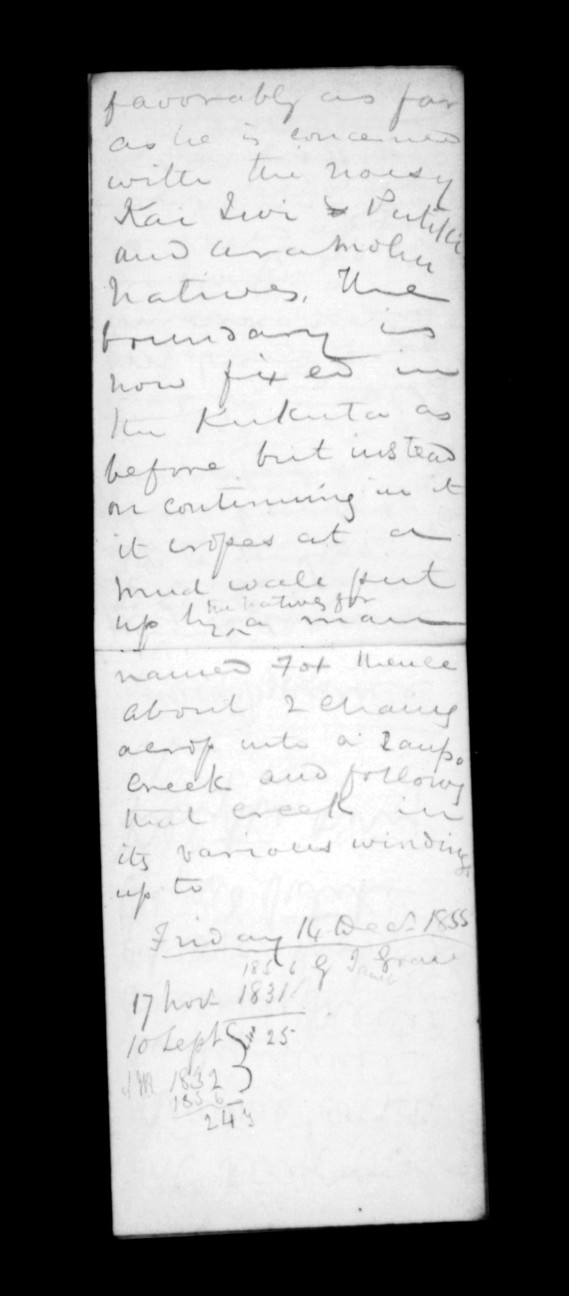 favorably as far
as he is concerned
with the noisy
Kai Iwi & Putiki
and aramoho
Natives. The
boundary is
now fixed in
the Kukuta as
before but instead
on continuing in it
it cropes at a
mud wale put
up by the natives for a man
named Fox thence
about 2 chains
acrop into a Raupo
creek and follows
that creek in
its various windings
up to
Friday 14 Decr 1855
1856 G Grace
17 Novr 1831
10 Sept 25
1832
1856
24 y